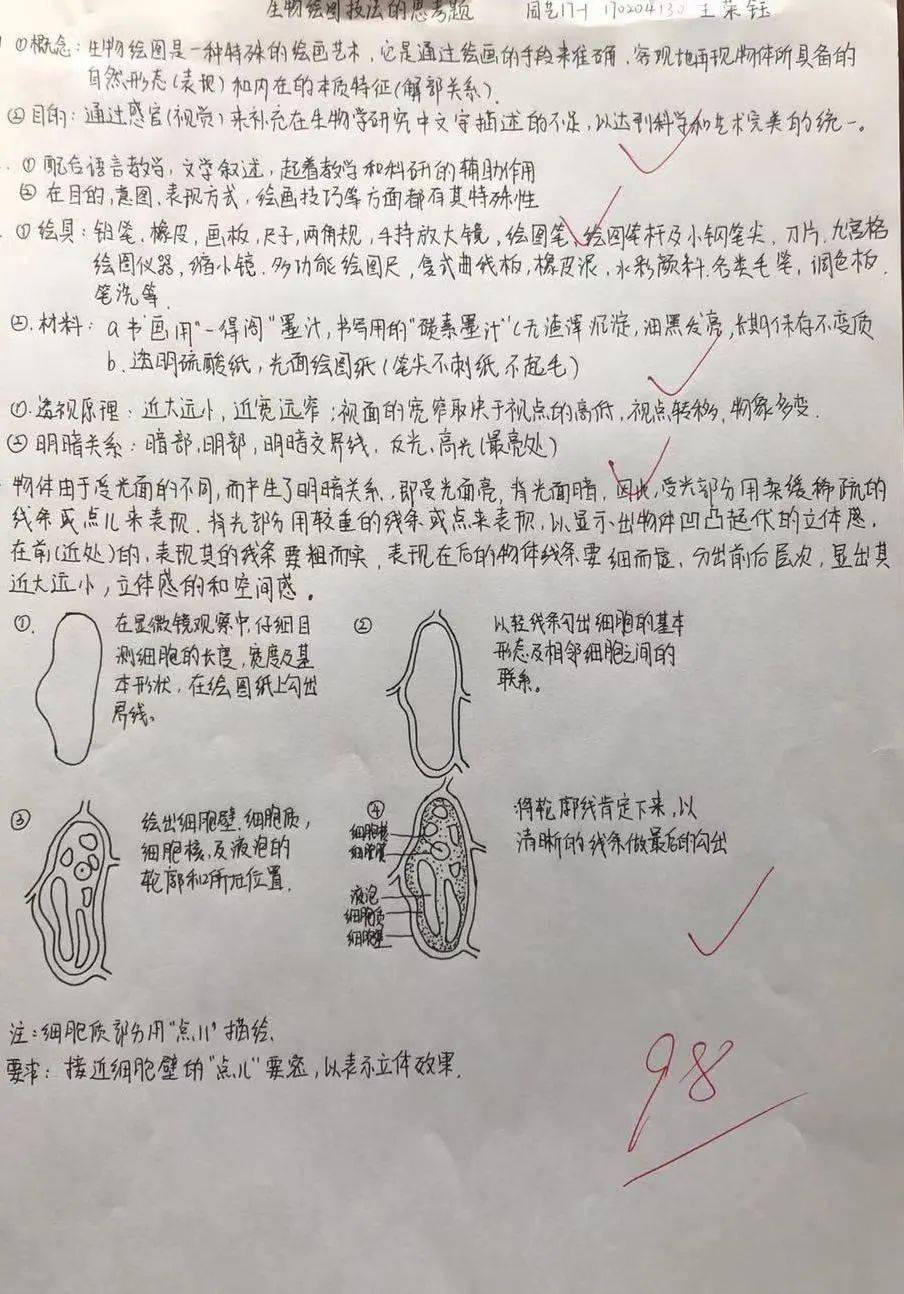 生物绘图技法的思考题 园艺17-1 170204130 王荣钰
①概念：生物绘图是一种特殊的绘画艺术，它是通过绘画的手段来准确、客观地再现物体所具备的
自然形态(表现)和内在的本质特征(解部关系).
②目的：通过感官(视觉)来补充在生物学研究中文字描述的不足，以达到科学和艺术完美的统一。
①配合语言教学，文学叙述，起着教学和科研的辅助作用
②在目的，意图、表现方式，绘画技巧等方面都有其特殊性
①绘具：铅笔、橡皮，画板，尺子，两角规，手持放大镜，绘图笔，绘图笔杆及小钢笔尖，刀片，九宫格
绘图仪器，缩小镜，多功能绘图尺，复式曲线板，橡皮泥，水彩颜料，各类毛笔，调色板，
笔洗等.
②.材料：a.书画用"一得阁"墨汁，书写用的"碳素墨汁"(无渣滓沉淀，油黑发亮，长期保存不变质
b.透明硫酸纸，光面绘图纸(笔尖不刺纸，不起毛)
①.透视原理：近大远小，近宽远窄；视面的宽窄取决于视点的高低，视点转移，物象多变.
②明暗关系：暗部，明部，明暗交界线，反光、高光(最亮处)
物体由于受光面的不同，而产生了明暗关系，即受光面亮，背光面暗，因此，受光部分用柔缓稀疏的
线条或点儿来表现，背光部分用较重的线条或点来表现，以显示出物体凹凸起伏的立体感。
在前(近处)的，表现其的线条要粗而实，表现在后的物体线条要细而虚，分出前后层次，显出其
近大远小，立体感的和空间感。
①. 在显微镜观察中，仔细目
测细胞的长度，宽度及基
本形状，在绘图纸上勾出
界线。
② 以轻线条勾出细胞的基本
形态及相邻细胞之间的
联系。
③ 绘出细胞壁、细胞质，
细胞核，及液泡的
轮廓和所在位置.
④ 将轮廓线肯定下来，以
清晰的线条做最后的勾出
细胞核
细胞膜
液泡
细胞质
细胞壁
注：细胞质部分用"点儿"描绘.
要求：接近细胞壁的"点儿"要密，以表示立体效果.
98